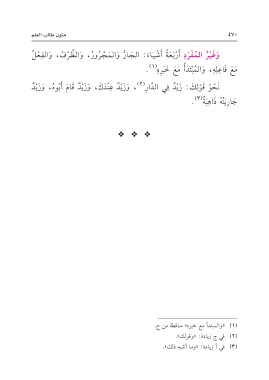 ٤٧٠ متون طالب العلم
وَغَيْرُ المُفْرَدِ أَرْبَعَةُ أَشْيَاءَ: الجَارُّ وَالمَجْرُورُ، وَالظَّرْفُ، وَالفِعْلُ
مَعَ فَاعِلِهِ، وَالمُبْتَدَأُ مَعَ خَبَرِهِ(١).
نَحْوُ قَوْلِكَ: زَيْدٌ فِي الدَّارِ(٢)، وَزَيْدٌ عِنْدَكَ، وَزَيْدٌ قَامَ أَبُوهُ، وَزَيْدٌ
جَارِيَتُهُ ذَاهِبَةٌ(٣).
(١) «والمبتدأ مع خبره» ساقطة من ج.
(٢) في ج زيادة: «وقولك».
(٣) في أ زيادة: «وما أشبه ذلك».